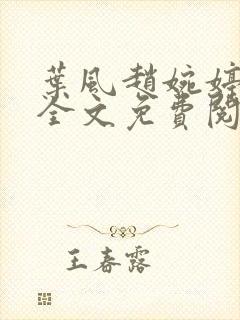 葉風趙婉婷
全文免費閱
王春露